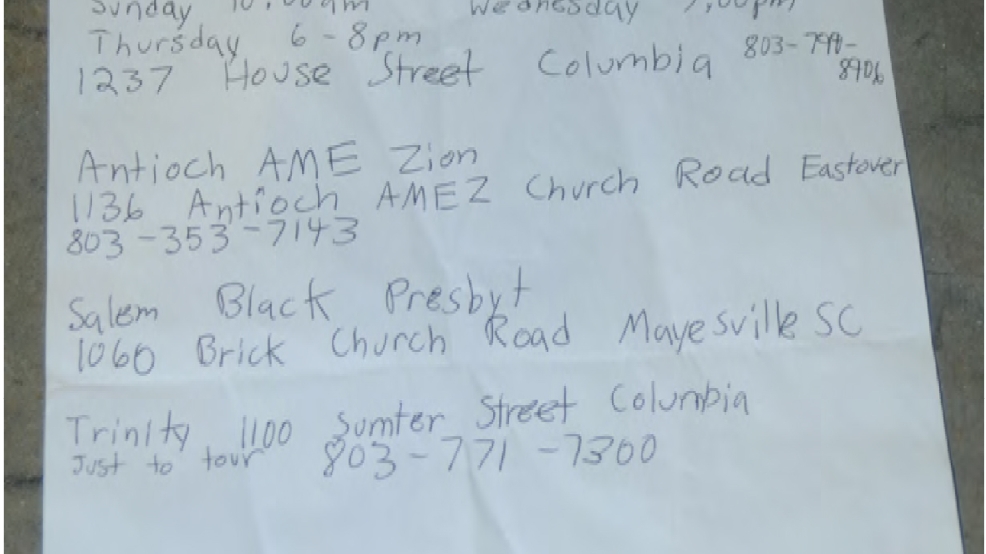 Sunday 10:00am Wednesday 7:00pm
Thursday 6-8pm
1237 House Street Columbia 803-799-
8906
Antioch AME Zion
1136 Antioch AMEZ Church Road Eastover
803-353-7143
Salem Black Presbyt
1060 Brick Church Road Mayesville SC
Trinity 1100 Sumter Street Columbia
Just to tour 803-771-7300